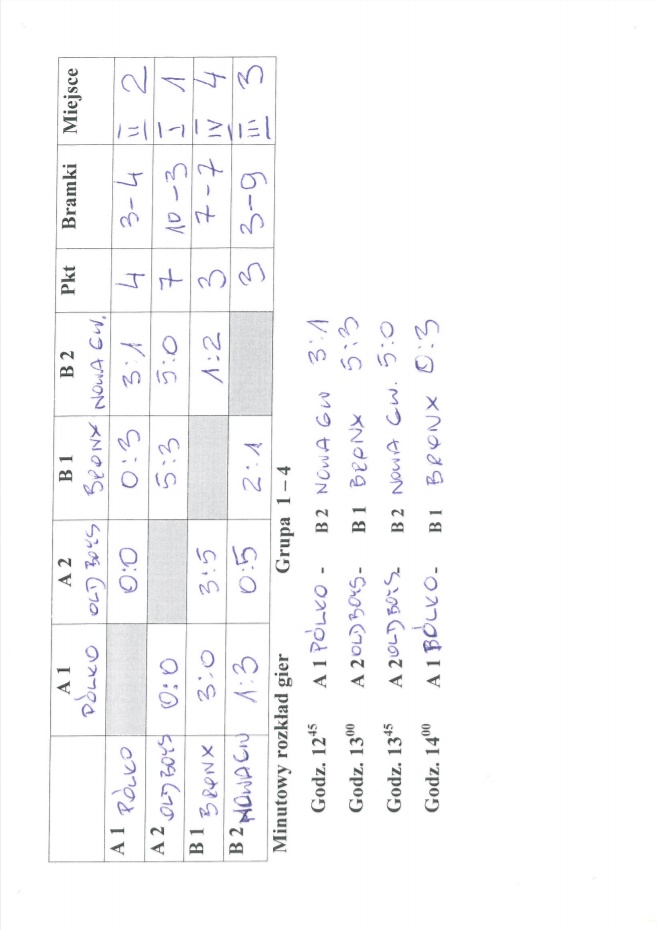 A 1 A 2 B 1 B 2 Pkt Bramki Miejsce
PÓLKO OLD BOYS BRONX NOWA GW.
A 1 PÓLKO 0:0 0:3 3:1 4 3-4 II 2
A 2 OLD BOYS 0:0 5:3 5:0 7 10-3 I 1
B 1 BRONX 3:0 3:5 1:2 3 7-7 IV 4
B 2 NOWA GW 1:3 0:5 2:1 3 3-9 III 3
Minutowy rozkład gier Grupa 1 – 4
Godz. 12⁴⁵ A 1 PÓLKO - B 2 NOWA GW 3:1
Godz. 13⁰⁰ A 2 OLD BOYS - B 1 BRONX 5:3
Godz. 13⁴⁵ A 2 OLD BOYS - B 2 NOWA GW. 5:0
Godz. 14⁰⁰ A 1 PÓLKO - B 1 BRONX 0:3